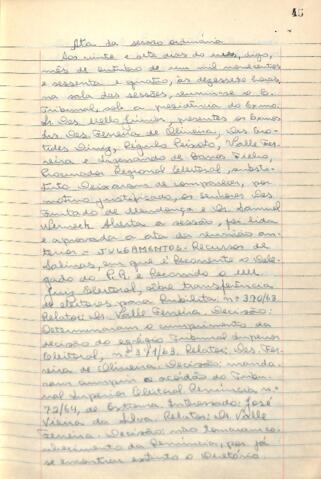 45
Ata da sessão ordinária
Aos vinte e sete dias do mês, digo,
mês de outubro de um mil novecentos
e sessenta e quatro, às dezesseis horas,
na sala das sessões, reuniu-se o E.
Tribunal, sob a presidência do Exmo.
Sr. Des. Mello Júnior, presentes os Exmos
Srs. Des. Ferreira de Oliveira, Drs.
Diniz, Régulo Peixoto, Valle Fer-
reira e de Barros Filho,
Procurador Regional Eleitoral, substi-
tuto. Deixaram de comparecer, por
motivo justificado, os senhores Des.
Furtado de Mendonça e Dr. Samuel
Werneck. Aberta a sessão, foi lida
e aprovada a ata da reunião an-
terior - JULGAMENTOS - Recursos de
Salinas, em que é Recorrente o Dele-
gado do P.R. e Recorrido o MM.
Juiz Eleitoral, sôbre transferência
de eleitores para Rubelita: nº 370/63.
Relator: Dr. Valle Ferreira. Decisão:
Determinaram o cumprimento da
decisão do egrégio Tribunal Superior
Eleitoral, nº 371/63. Relator: Des. Fer-
reira de Oliveira. Decisão: manda-
ram cumprir o acórdão do Tribu-
nal Superior Eleitoral. nº
72/64, de Interessado: José
Vieira da Silva. Relator: Dr. Valle
Ferreira. Decisão: não tomaram co-
nhecimento da, por já
se encontrar extinto o Diretório